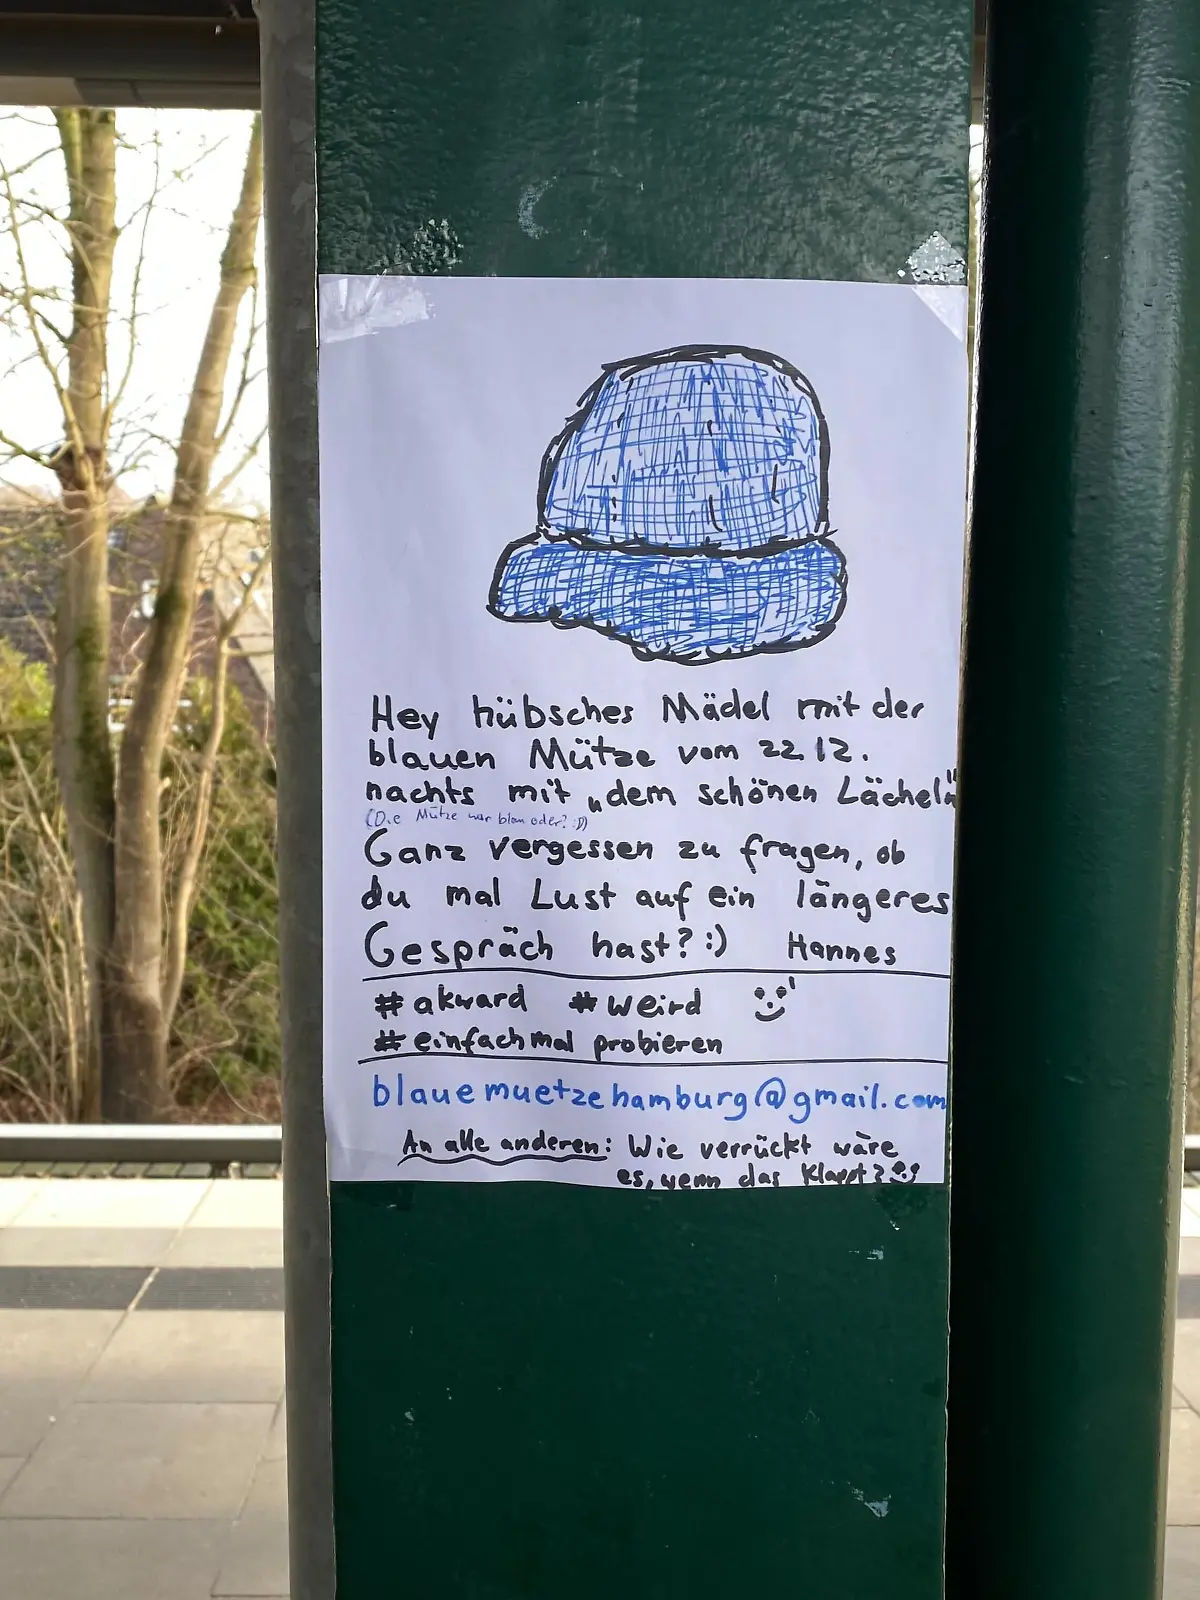 Hey hübsches Mädel mit der
blauen Mütze vom 22.12.
nachts mit „dem schönen Lächeln"
(Die Mütze war blau oder? :D)
Ganz vergessen zu fragen, ob
du mal Lust auf ein längeres
Gespräch hast? :) Hannes
# akward # weird
# einfachmal probieren
blauemuetzehamburg@gmail.com
An alle anderen: Wie verrückt wäre
es, wenn das klappt?